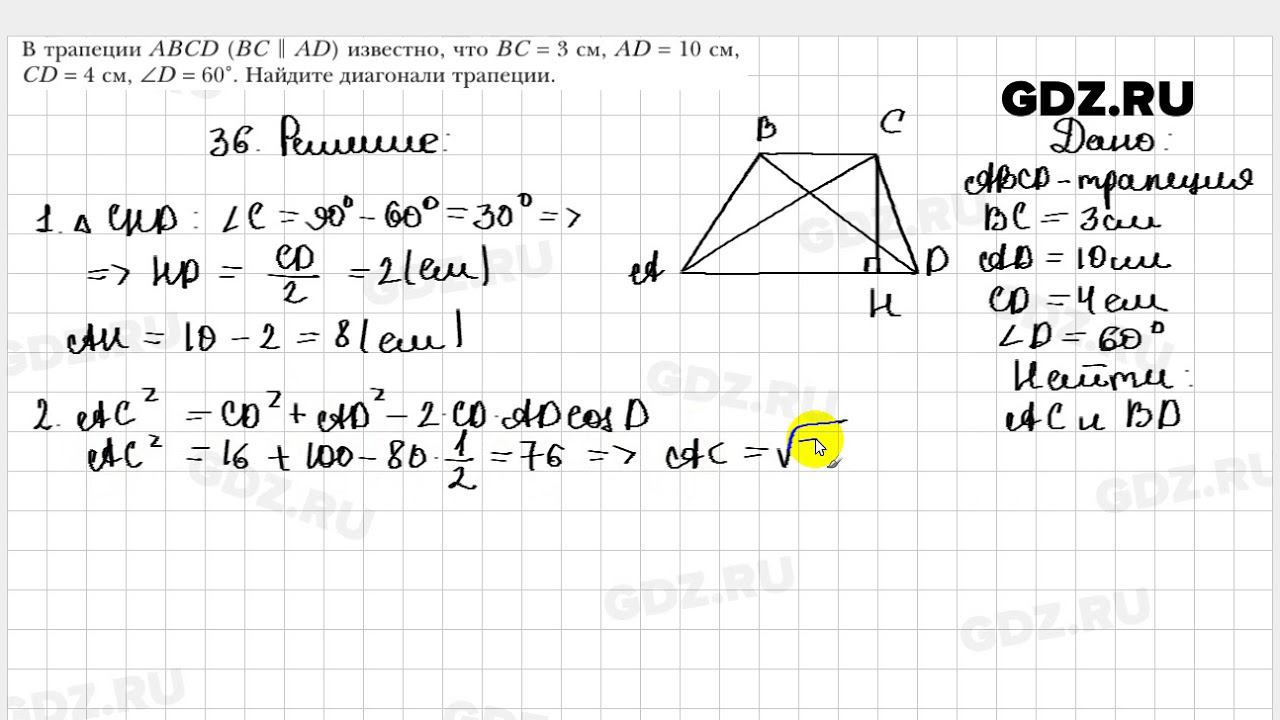 В трапеции ABCD (BC ∥ AD) известно, что BC = 3 см, AD = 10 см,
CD = 4 см, ∠D = 60°. Найдите диагонали трапеции.
GDZ.RU
36. Решение:
1. △ CHD : ∠C = 90° − 60° = 30° =>
=> HD = CD/2 = 2 (см)
AH = 10 − 2 = 8 (см)
2. AC² = CD² + AD² − 2·CD·AD cos D
AC² = 16 + 100 − 80 · 1/2 = 76 => AC = √
B
C
A
D
H
Дано:
ABCD - трапеция
BC = 3 см
AD = 10 см
CD = 4 см
∠D = 60°
Найти:
AC и BD
GDZ.RU
GDZ.RU
GDZ.RU
GDZ.RU
GDZ.RU
GDZ.RU
GDZ.RU
GDZ.RU
GDZ.RU